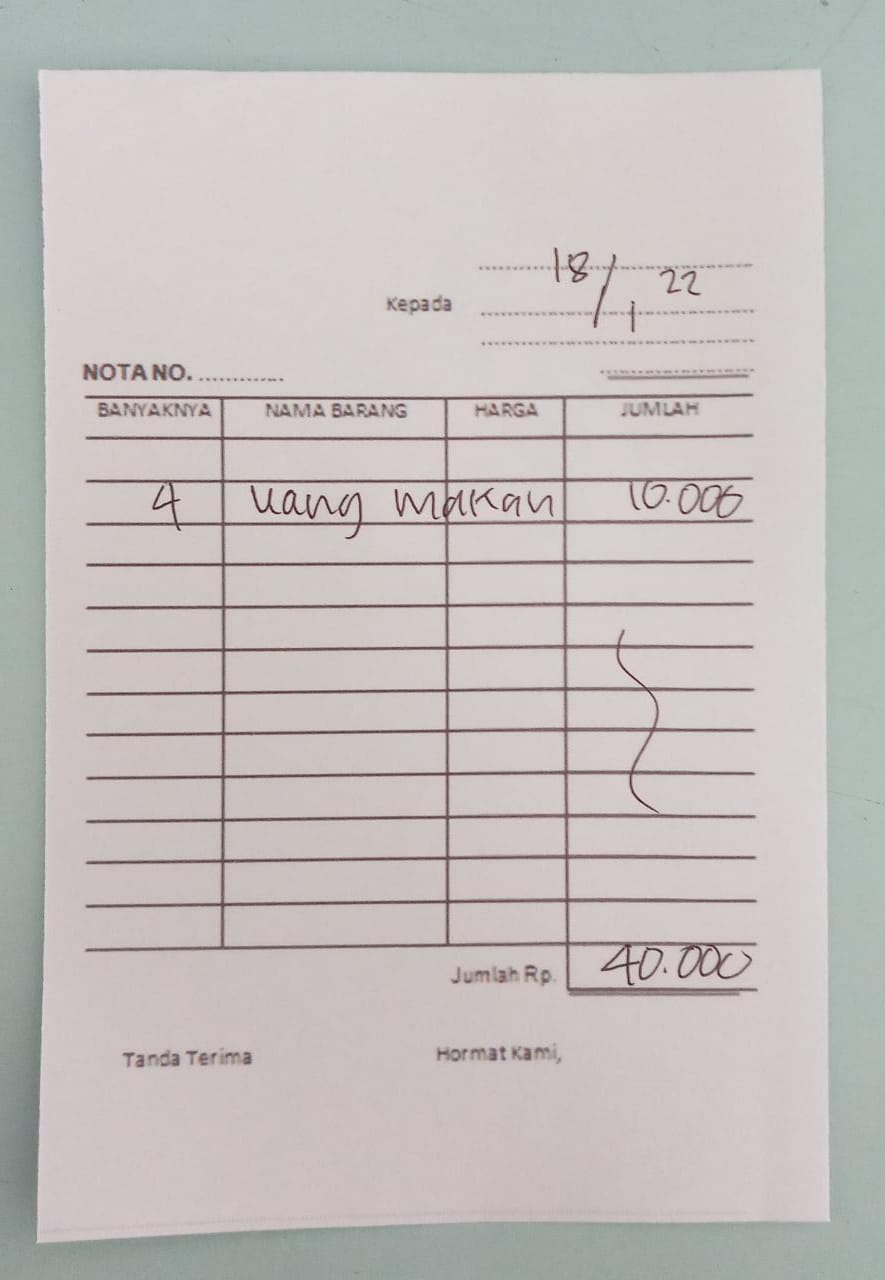 18/1 22
Kepada
NOTA NO. .............
BANYAKNYA NAMA BARANG HARGA JUMLAH
4 uang makan 10.000
Jumlah Rp. 40.000
Tanda Terima Hormat Kami,